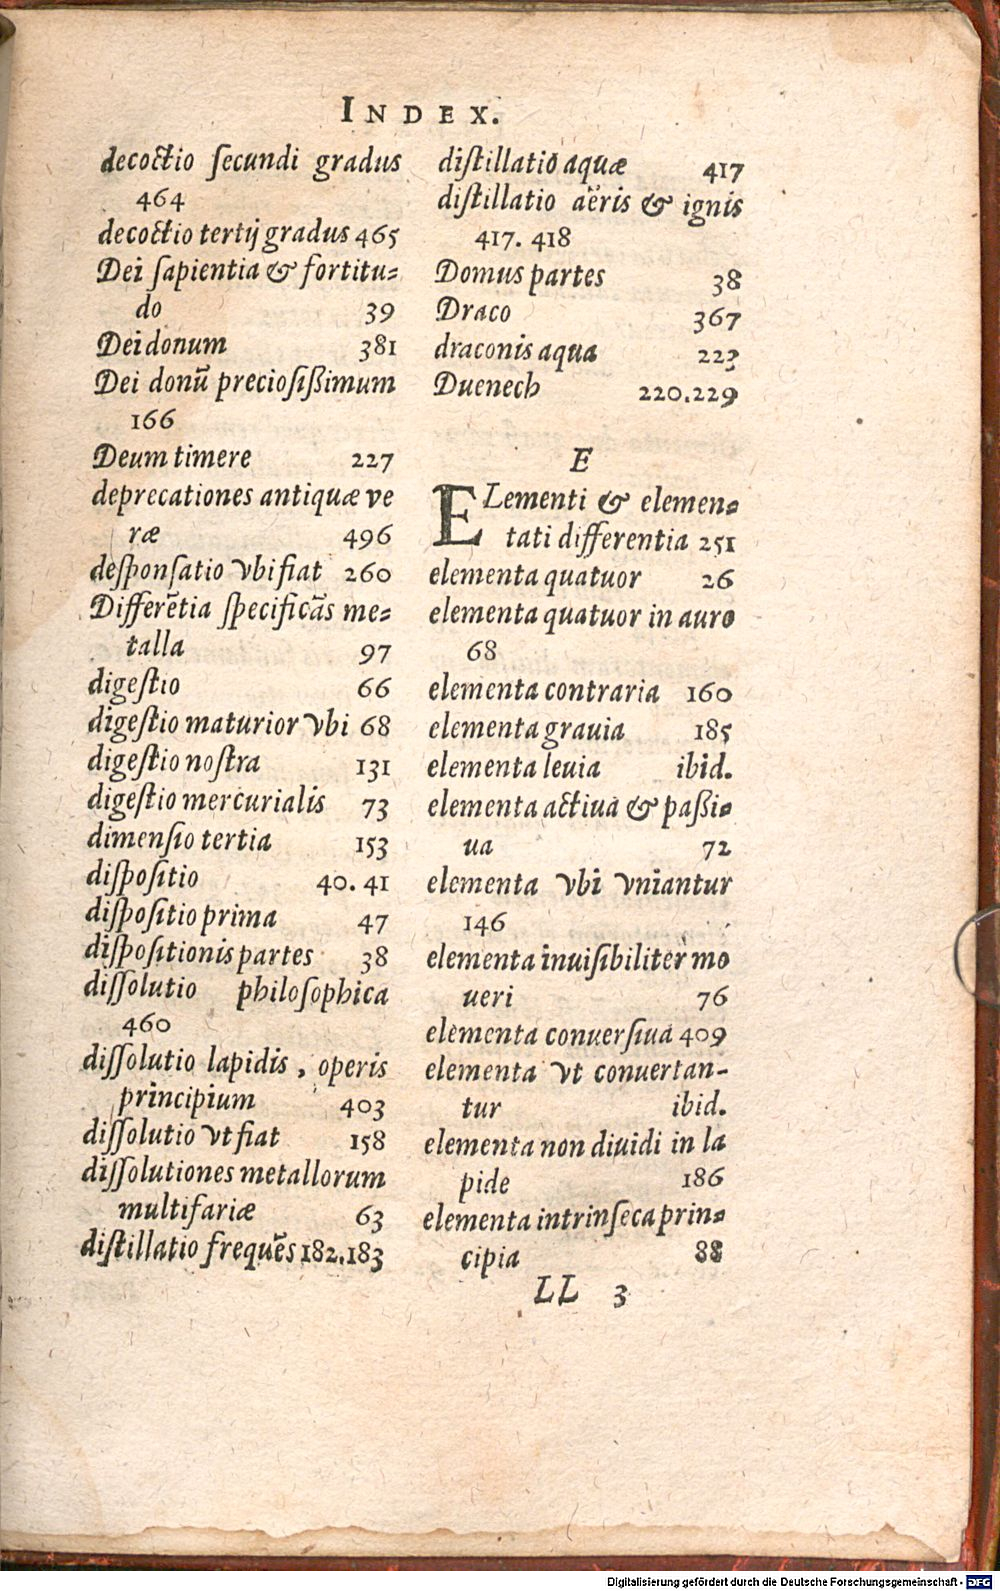 INDEX.
decoctio ſecundi gradus
464
decoctio tertij gradus 465
Dei ſapientia & fortitu-
do 39
Dei donum 381
Dei donū precioſißimum
166
Deum timere 227
deprecationes antiquæ ve
ræ 496
deſponſatio vbi fiat 260
Differētia ſpecificās me-
talla 97
digeſtio 66
digeſtio maturior vbi 68
digeſtio noſtra 131
digeſtio mercurialis 73
dimenſio tertia 153
diſpoſitio 40. 41
diſpoſitio prima 47
diſpoſitionis partes 38
diſſolutio philoſophica
460
diſſolutio lapidis, operis
principium 403
diſſolutio vt fiat 158
diſſolutiones metallorum
multifariæ 63
diſtillatio frequēs 182.183
diſtillatio aquæ 417
diſtillatio aëris & ignis
417. 418
Domus partes 38
Draco 367
draconis aqua 223
Duenech 220.229
E
ELementi & elemen-
tati differentia 251
elementa quatuor 26
elementa quatuor in auro
68
elementa contraria 160
elementa grauia 185
elementa leuia ibid.
elementa actiua & paßi-
ua 72
elementa vbi vniantur
146
elementa inuiſibiliter mo
ueri 76
elementa conuerſiua 409
elementa vt conuertan-
tur ibid.
elementa non diuidi in la
pide 186
elementa intrinſeca prin-
cipia 88
LL 3
Digitalisierung gefördert durch die Deutsche Forschungsgemeinschaft - DFG